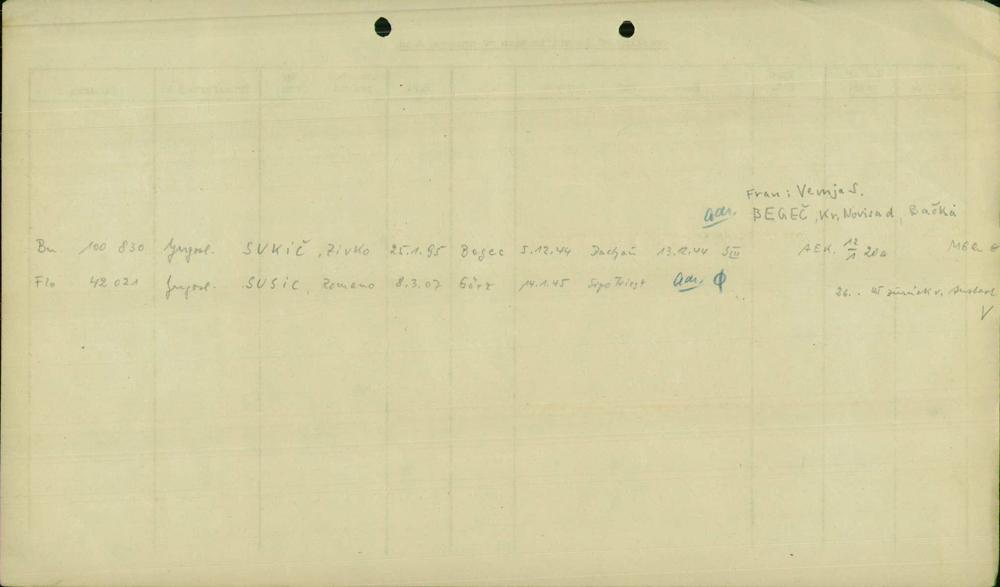 Frau: Vemja S.
adr. BEGEČ, Kr. Novisad, Bačka
Bu 100 830 Jugosl. SUKIČ, Živko 25.1.95 Begec 5.12.44 Dachau 13.12.44 SIII AEK. 12/1 20a
Flo 42 021 Jugosl. SUSIC, Romano 8.3.07 Görz 14.1.45 Sipo Triest adr. Φ
26. . 45 zurück v.
V